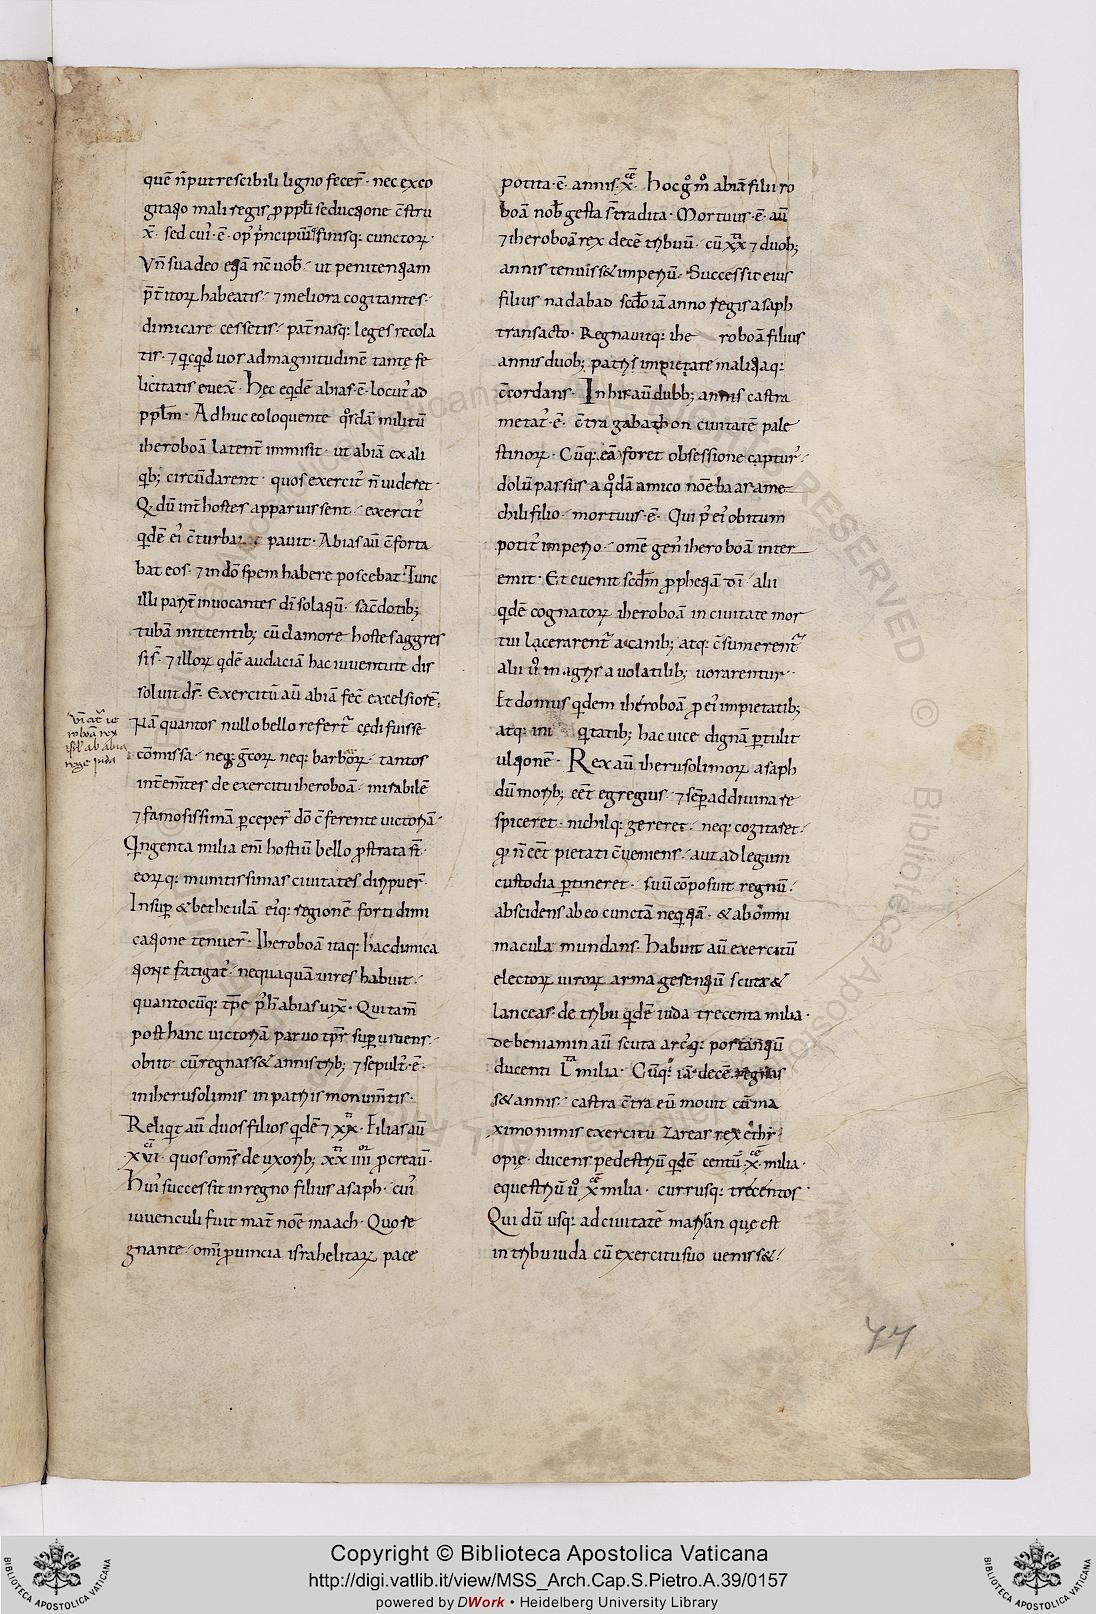 quē n̄ putrescibili ligno fecer̄· nec exco
gitatio mali regis ꝓ ppl̄i seductione c̄stru
x̄· sed cui᾿·ē· op᾿ p̄ncipiūq; finisq; cunctoꝝ·
Vn̄ suadeo etiā nc̄ uob̄· ut penitentiam
p̄t̄itoꝝ habeatis· ⁊ meliora cogitantes·
dimicare cessetis· pat̄nasq; leges recola
tis· ⁊ qcqd uos ad magnitudinē tantę fe
licitatis euex̄· Hęc eqdē abias·ē·locut᾿ ad
ppl̄m· Adhuc eo loquente qosdā militū
iheroboā latent̄ immisit· ut abiā ex ali
qb; circūdarent· quos exercit᾿ n̄ uideret·
Q dū int̄ hostes apparuissent· exercit᾿
qdē ei᾿ c̄turba pauit· Abias aū c̄forta
bat eos· ⁊ in dō spem habere poscebat· Tunc
illi parit̄ inuocantes dī solatiū· sac̄dotib;
tubā mittentib; cū clamore hostes aggres
si s̄· ⁊ illoꝝ qdē audaciā hac iuuentute dis
soluit d̄s· Exercitū aū abiā fec̄ excelsiorē·
Nā quantos nullo bello refert᾿ cędi fuisse
cōmissa· neq; gc̄oꝝ neq; barbaroꝝ· tantos
int̄em̄tes de exercitu iheroboā· mirabilē
⁊ famosissimā ꝑceper̄ dō c̄ferente uictoriā·
Qingenta milia eni hostiū bello ꝓstrata s̄t·
eoꝝq; munitissimas ciuitates diripuer̄·
Insuꝑ & betheulā ei᾿q; regionē forti dimi
catione tenuer̄· Iheroboā itaq; hac dimica
tione fatigat᾿· nequaquā uires habuit·
quantocūq; tp̄e p᾿ h̄ abias uix̄· Qui tam̄
post hanc uictoriā paruo tp̄r suꝑuiuens·
obiit· cū regnass& annis trib; ⁊ sepult᾿·ē·
in iherusolimis in patriis monum̄tis·
Reliqit aū duos filios qdē ⁊ xx· Filias aū
·xvi· quos om̄s de uxorib; xx iiii ꝓcreaū·
Hui᾿ successit in regno filius asaph· cui᾿
iuuenculi fuit mat̄ noē maach· Quo re
gnante· omi ꝓuincia israhelitaꝝ pace
vn̄ at᾿ ie
roboā rex
isrl ab abia
rege juda
potita·ē· annis·x· Hoc g̊ m̊ abiā filii ro
boā nob̄ gesta s̄ tradita· Mortuus·ē· aū
⁊ iheroboā rex decē tribuū· cū xx ⁊ duob;
annis tenuiss& imperiū· Successit eius
filius nadabad sc̄do iā anno regis asaph
transacto· Regnauitq; ihe roboā filius
annis duob; patris impietate malitiaq;
c̄cordans· In his aū duobb; annis castra
metat᾿·ē· c̄tra gabathon ciuitatē pale
stinoꝝ· Cūq; eā foret obsessione captur᾿·
dolū passus a qodā amico noē baas ame
chili filio· mortuus·ē· Qui p᾿ ei᾿ obitum
potit᾿ imperio· omē gen᾿ iheroboā inter
emit· Et euenit sc̄dm̄ ꝓphetiā dī· alii
qdē cognatoꝝ iheroboā in ciuitate mor
tui lacerarent᾿ a canib; atq; c̄sumerent᾿
alii ů in agris a uolatilib; uorarentur·
Et domus qdem iheroboā ꝓ ei᾿ impietatib;
atq; ini qitatib; hac uice dignā ꝑtulit
ultionē· Rex aū iherusolimoꝝ asaph
dū morib; eet̄ egregius· ⁊ sēꝑ ad diuina re
spiceret· nichilq; gereret· neq; cogitaret·
qd n̄ eēt pietati c̄ueniens· aut ad legum
custodia ꝑtineret· suū cōposuit regnū·
abscidens ab eo cunctā neqtiā· & ab omni
macula mundans· Habuit aū exercitū
electoꝝ uiroꝝ arma gesentiū scuta &
lanceas· de tribu qdē iuda trecenta milia·
de beniamin aū scuta arc᾿q; portantiū
ducenti L milia· Cūq; iā decē regnas
s& annis· castra c̄tra eū mouit cū ma
ximo nimis exercitu zareas rex ethi
opię· ducens pedestriū qdē centū x milia·
equestriū ů x milia· currusq; trecentos·
Qui dū usq; ad ciuitatē marisan que est
in tribu iuda cū exercitu suo ueniss&·
77
Copyright © Biblioteca Apostolica Vaticana
http://digi.vatlib.it/view/MSS_Arch.Cap.S.Pietro.A.39/0157
powered by DWork • Heidelberg University Library